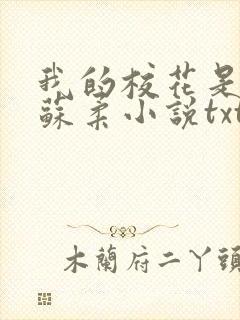 我的校花是
蘇柔小說txt
木蘭府二丫頭